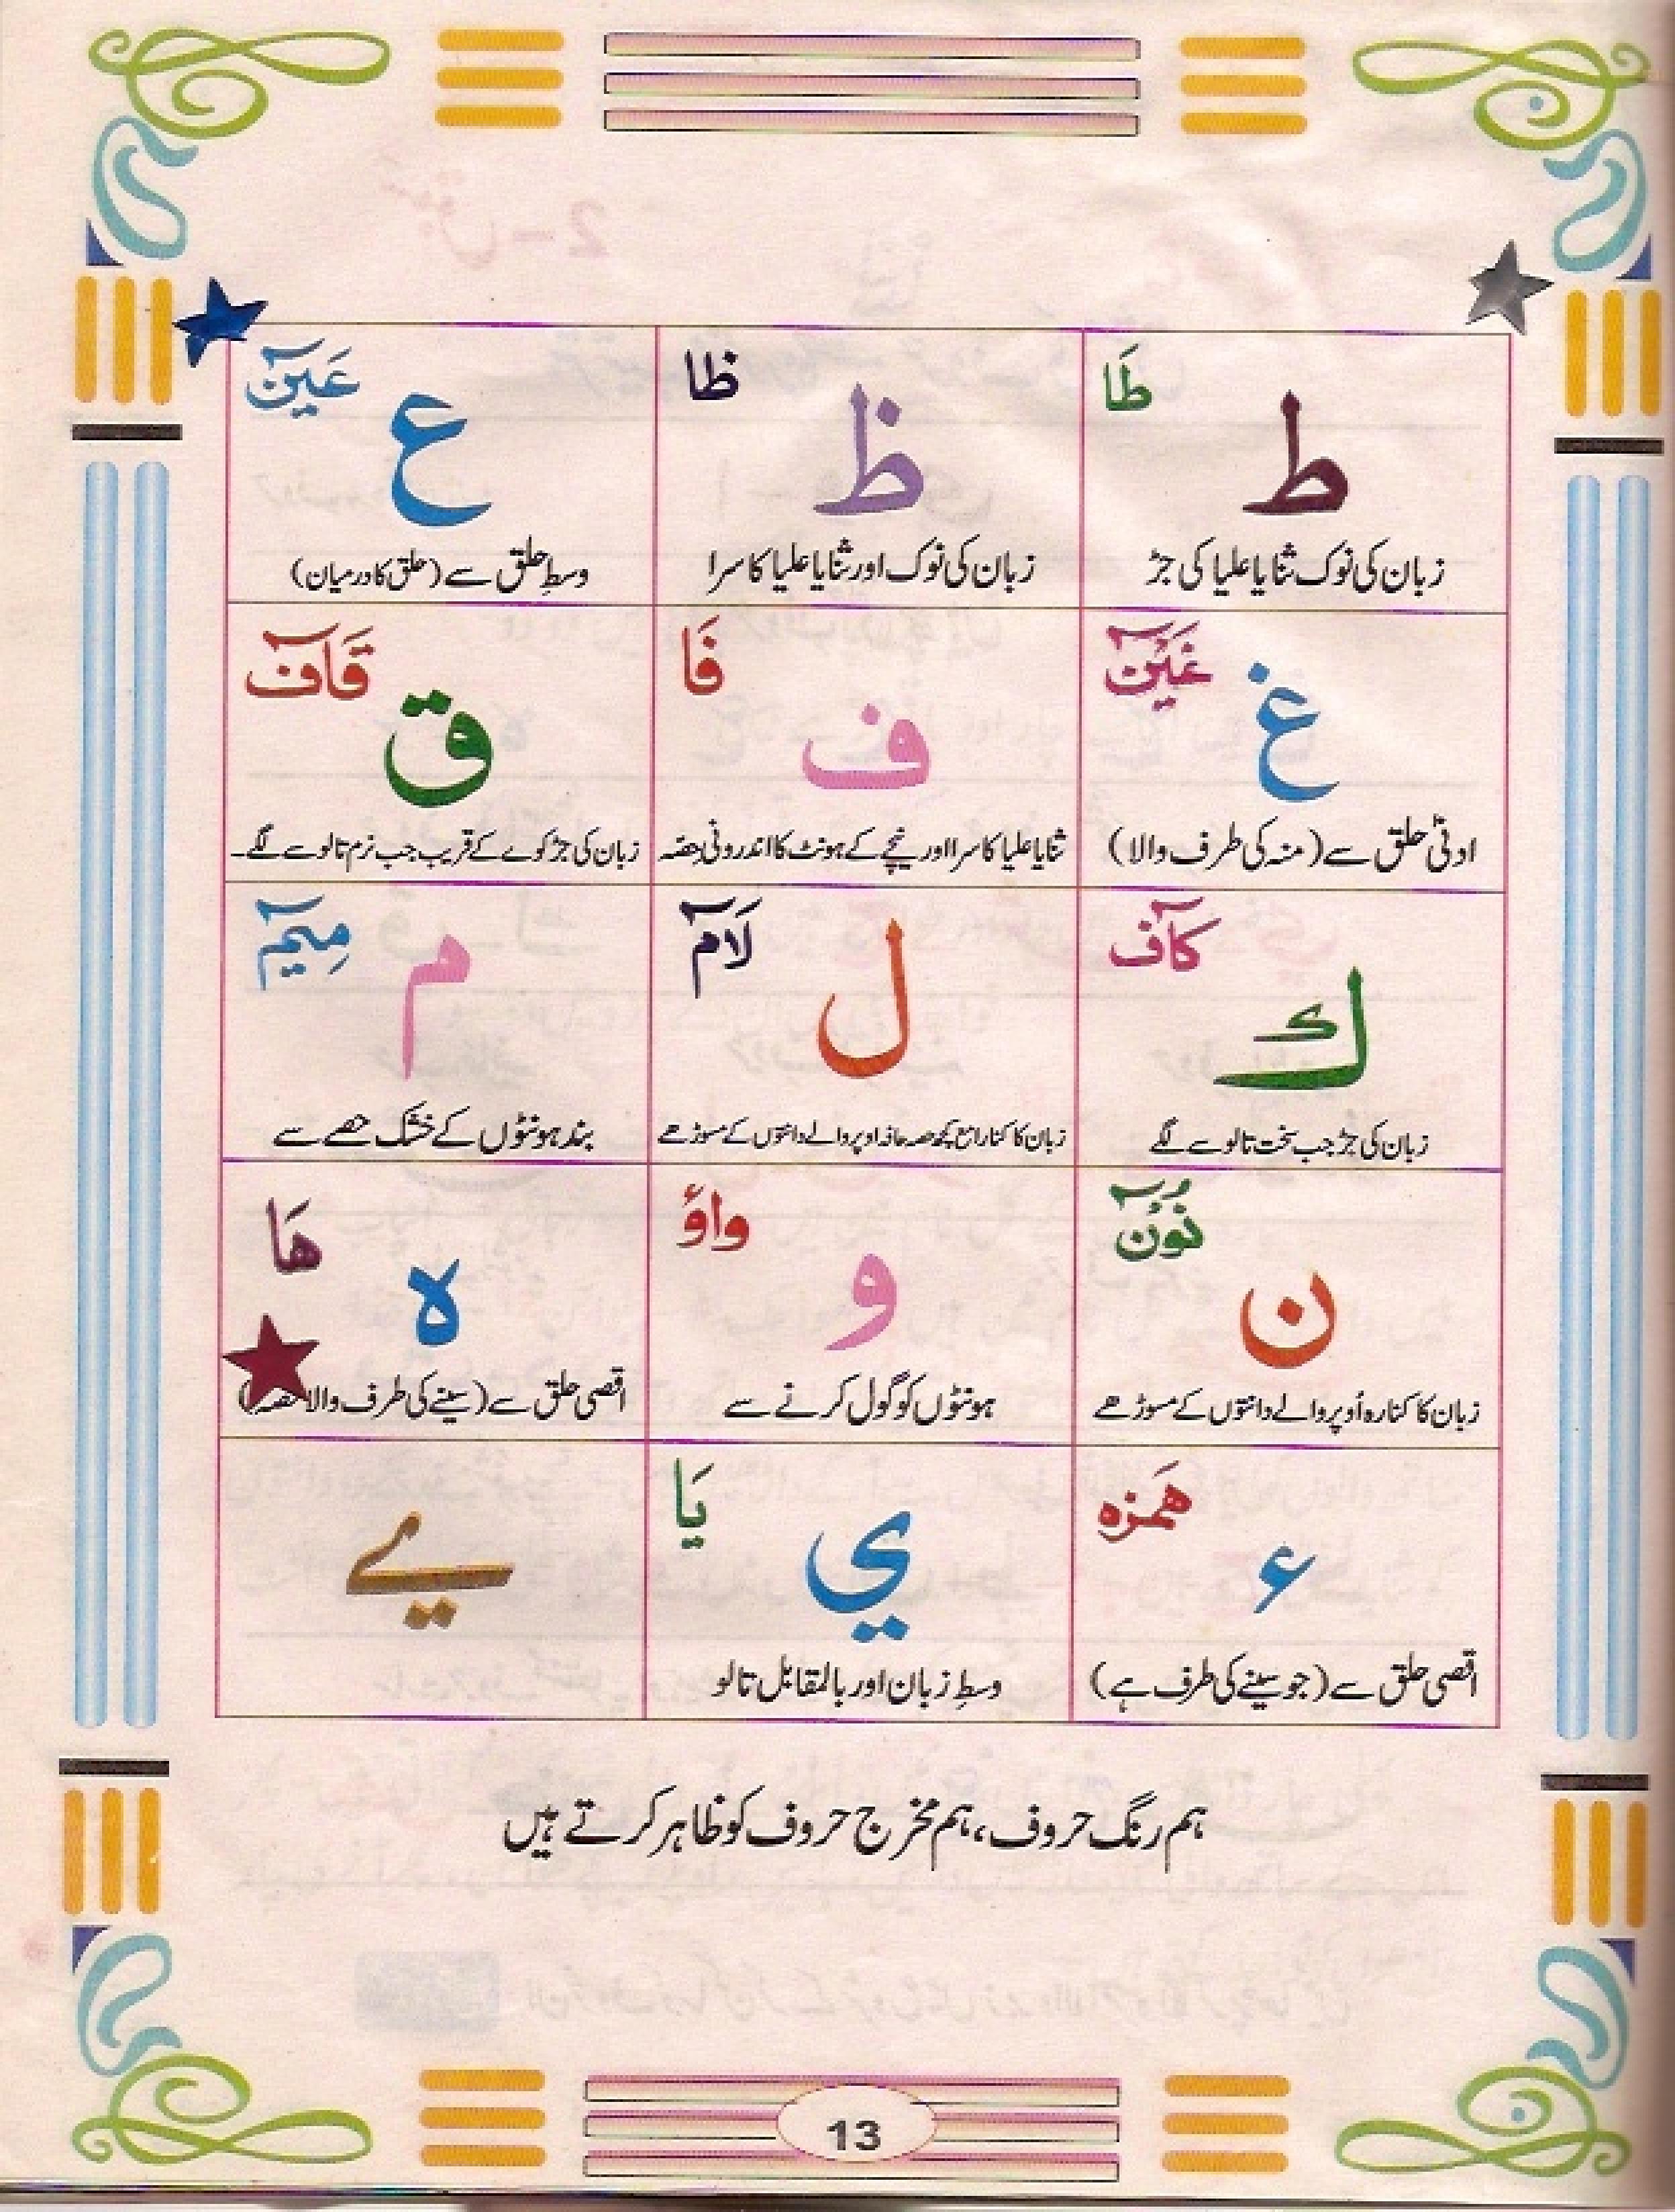 طَا
ط
زبان کی نوک ثنایا علیا کی جڑ
ظا
ظ
زبان کی نوک اور ثنایا علیا کا سرا
عَينۤ
ع
وسطِ حلق سے (حلق کا درمیان)
غَيْنۤ
غ
ادنیٰ حلق سے (منہ کی طرف والا)
فَا
ف
ثنایا علیا کا سرا اور نیچے کے ہونٹ کا اندرونی حصّہ
قَافۤ
ق
زبان کی جڑ کوے کے قریب جب نرم تالو سے لگے۔
كَافۤ
ك
زبان کی جڑ جب سخت تالو سے لگے
لَامۤ
ل
زبان کا کنارا مع کچھ حصہ حافہ اوپر والے دانتوں کے مسوڑھے
مِيمۤ
م
بند ہونٹوں کے خشک حصے سے
نُوْنۤ
ن
زبان کا کنارہ اُوپر والے دانتوں کے مسوڑھے
واؤ
و
ہونٹوں کو گول کرنے سے
هَا
ہ
اقصی حلق سے (سینے کی طرف والا حصہ)
هَمزہ
ء
اقصی حلق سے (جو سینے کی طرف ہے)
يَا
ي
وسطِ زبان اور بالمقابل تالو
ے
ہم رنگ حروف، ہم مخرج حروف کو ظاہر کرتے ہیں
13